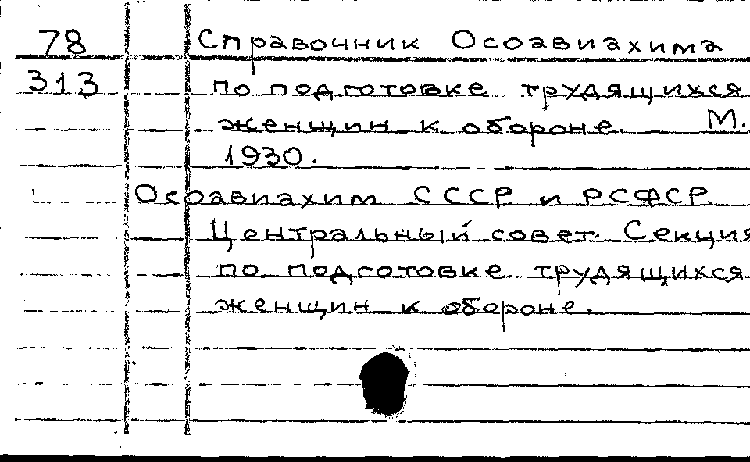 78 Справочник Осоавиахима
313 по подготовке трудящихся
женщин к обороне. М.
1930.
Осоавиахим СССР и РСФСР.
Центральный совет. Секция
по подготовке трудящихся
женщин к обороне.